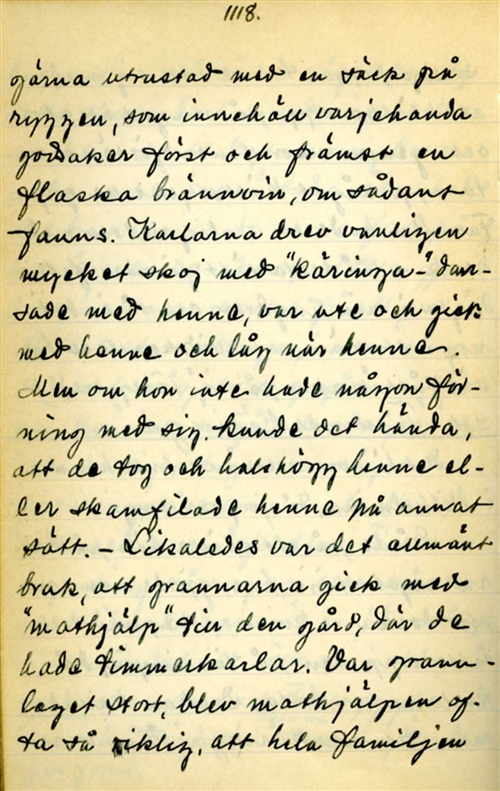 1118.
gärna utrustad med en säck på
ryggen, som innehöll varjehanda
godsaker först och främst en
flaska brännvin, om sådant
fanns. Karlarna drev vanligen
mycket skoj med "käringa-" dan-
sade med henne, var ute och gick
med henne och låg när henne.
Men om hon inte hade någon för-
ning med sig. kunde det hända,
att de tog och halshögg henne el-
ler skamfilade henne på annat
sätt. - Likaledes var det allmänt
bruk, att grannarna gick med
"mathjälp" till den gård, där de
hade timmerkarlar. Var grann-
laget stort, blev mathjälpen of-
ta så riklig, att hela familjen